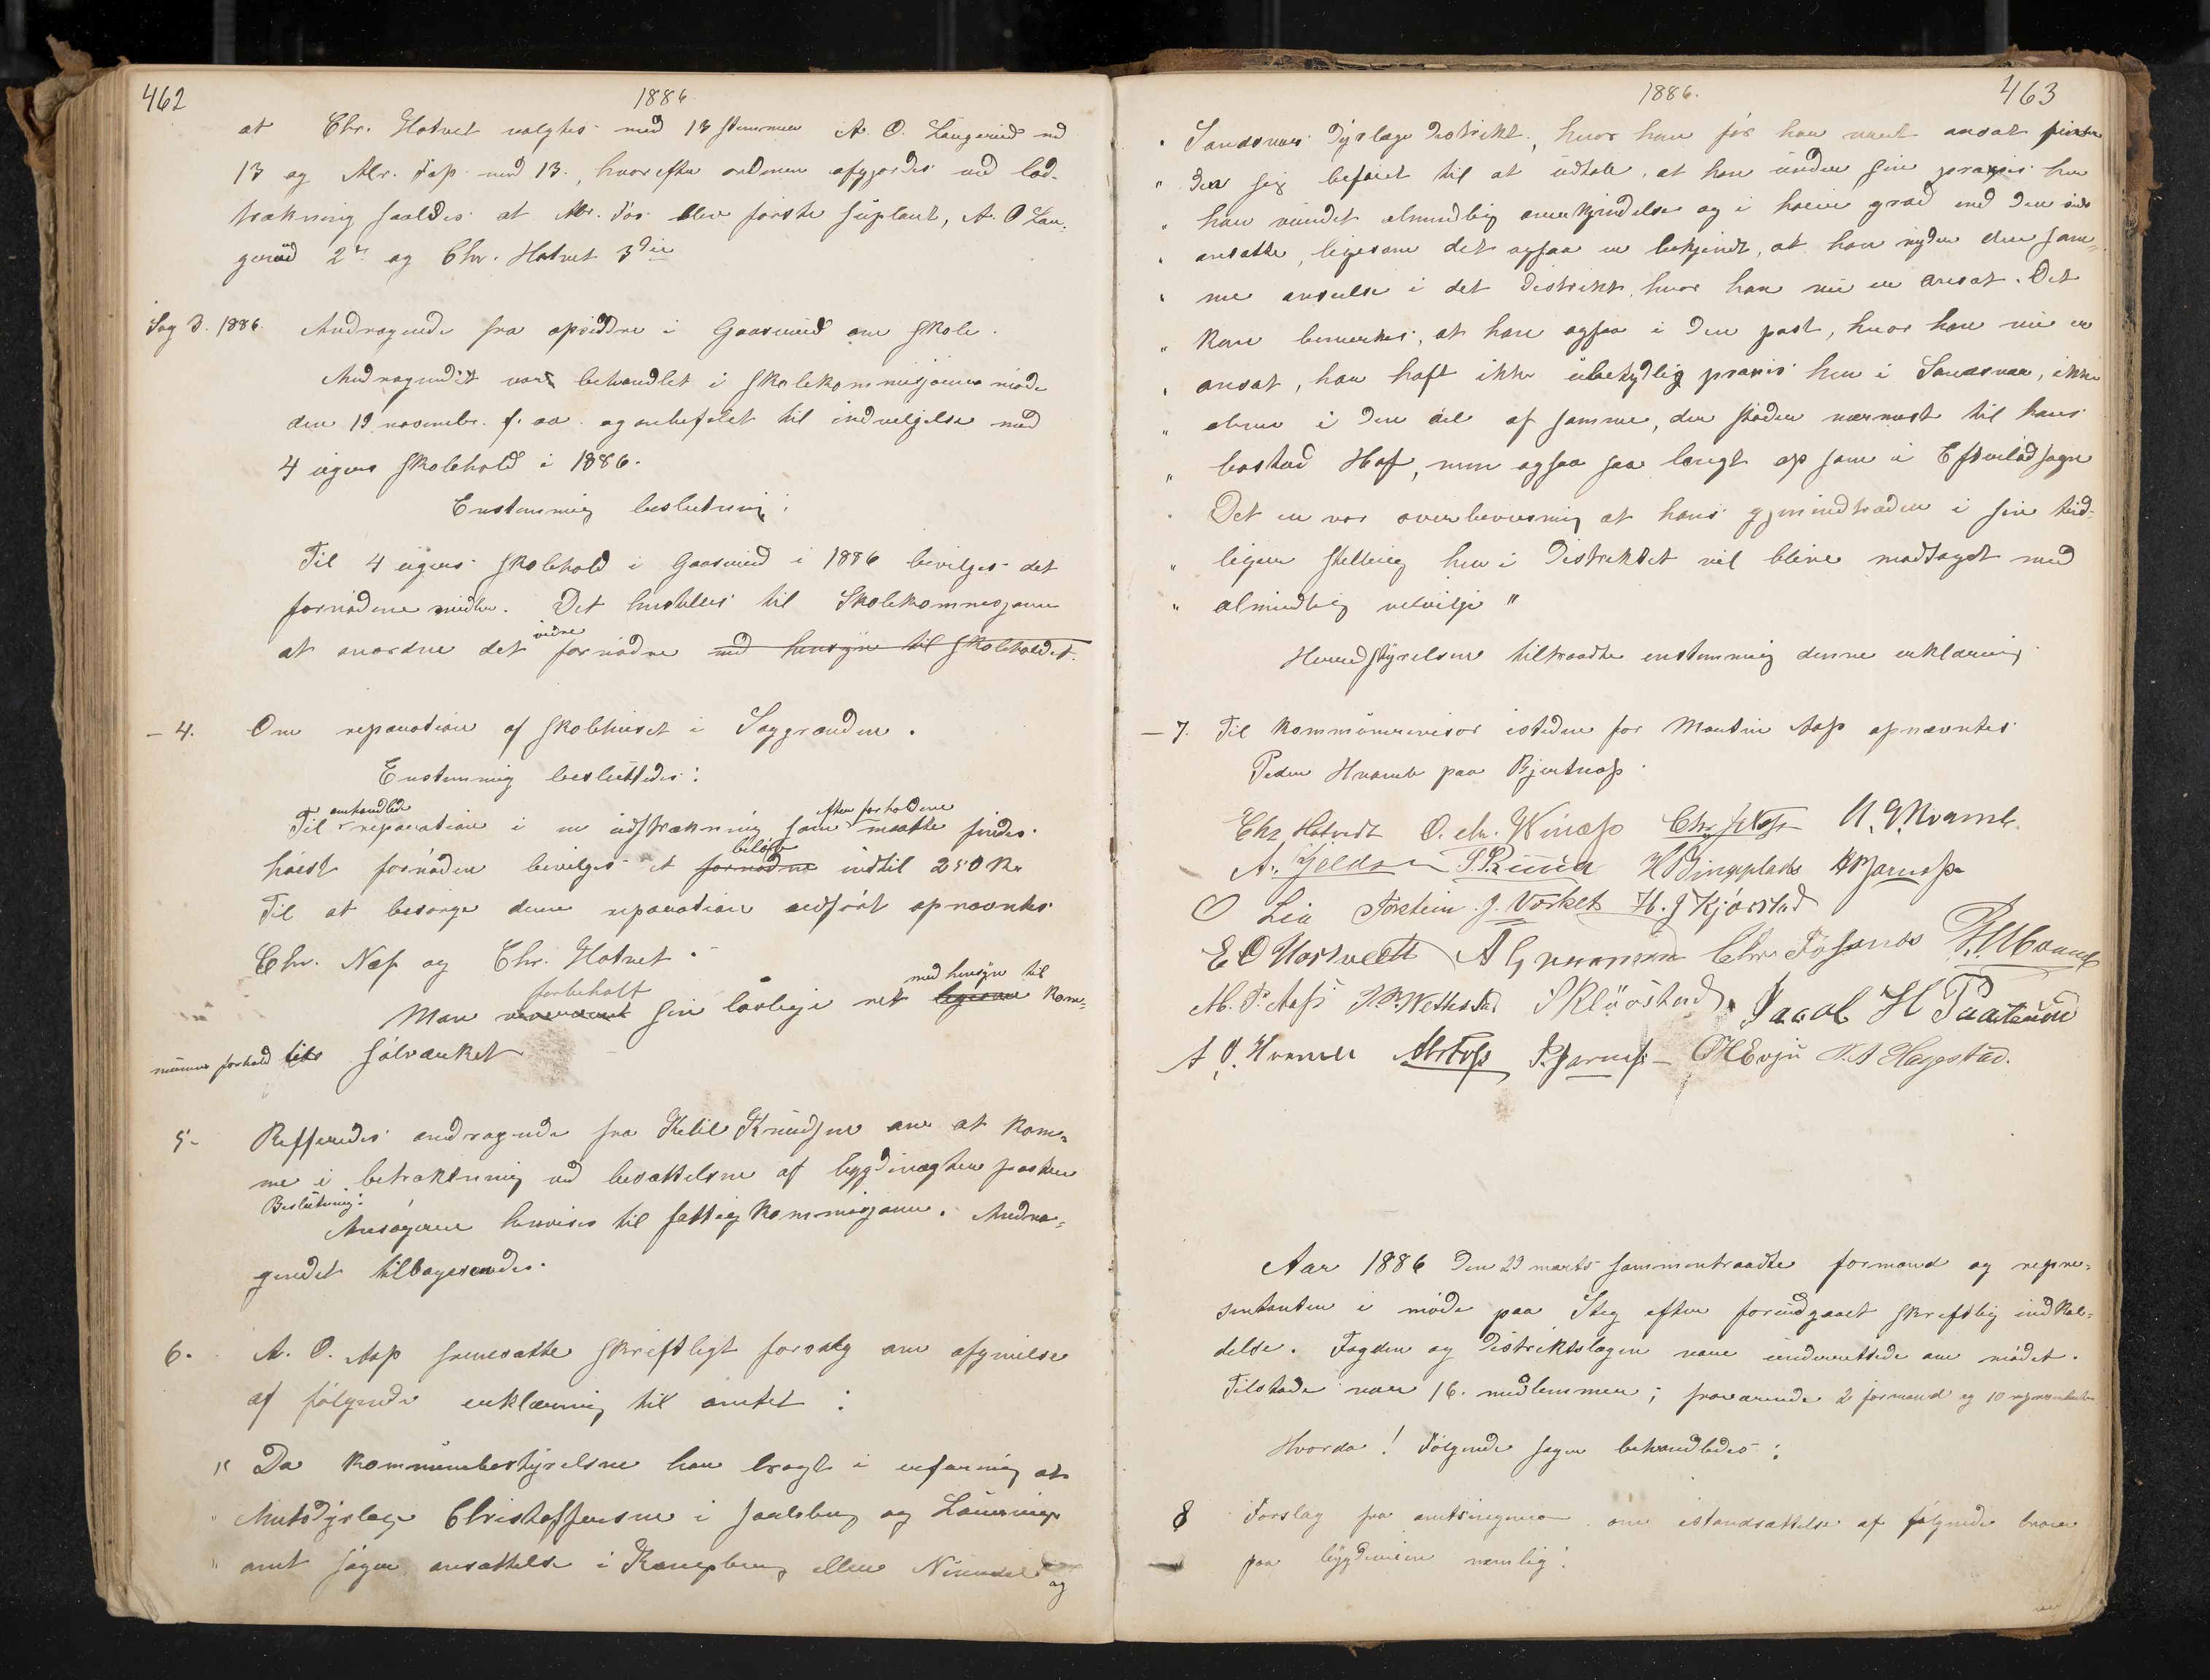 462
1886
at Chr. Hotvet valgtes med 13 stemmer A. O. Langerud med
13 og Abr. Fos med 13, hvorefter ordenen afgjordes ved lod-
trækning saaledes at Abr. Fos blev første suplant, A. O Lan-
gerud 2den og Chr. Hotvet 3die
Sag 3. 1886. Andragende fra opsiddere i Gaasmid om skole.
Andragendet var behandlet i skolekommisjonens møde
den 19 novembr. f. aa. og anbefalet til indvilgelse med
4 ugers skolehold i 1886.
Enstemmig beslutning:
Til 4 ugers skolehold i Gaasmid i 1886 bevilges det
fornødne midler. Det henstilles til Skolekommisjonen
at anordne det videre fornødne med hensyn til skoleholdet.
- 4. Om reparation af skolehuset i Saggrænden.
Enstemmig besluttedes:
Til omhandlede reparation i en udstrækning som efter forholdene maatte findes
høist fornøden bevilges et fornødne beløb indtil 250 Kr
Til at besørge denne reparation udført opnævntes
Chr. Næss og Chr. Hotvet.
Man forbeholt sin lovlige ret med hensyn til kom-
munens forhold til sølvverket
5- Refferedes andragende fra Ketil Knudsen om at kom-
me i betraktning ved besættelsen af bygdevægterposten
Beslutning:
Ansøgeren henvises til fattigkommisjonen. Andra-
gendet tilbagesendes.
6. A. O. Aas fremsatte skriftligt forslag om afgivelse
af følgende erklæring til amtet:
"Da kommunebestyrelsen har bragt i erfaring at
" Amtsdyrlæge Christoffersen i Jarlsberg og Laurvigs
" amt søger ansættelse i Kongsberg eller Numedal og
1886.
463
" Sandsvær dyrlæge distrikt, hvor han før har været ansat finder
" den sig beføiet til at udtale, at han under sin praxsis her
" har vundet almindelig anerkjendelse og i høiere grad end den nu
" ansatte, ligesom det ogsaa er bekjendt, at han nyder den sam-
" me anseelse i det distrikt, hvor han nu er ansat. Det
" kan bemerkes, at han ogsaa i den post, hvor han nu er
" ansat, har haft ikke ubetydlig praxis her i Sandsvær, ikke
" alene i den del af samme, der støder nærmest til hans
" bosted Hof, men ogsaa saa langt op som i Efteløtsogn
" Det er vor overbevisning at hans gjenindtræden i sin tid-
" ligere stilling her i distriktet vil blive modtaget med
" almindelig velvilje"
Herredstyrelsen tiltraadte enstemmig denne erklæring
- 7. Til kommunerevisor istedenfor Martin Aas opnævntes
Peder Hvamb paa Bjertnæs.
Chr. Hotvedt O. Chr. Winæss Chr. J. Næss
O Lia Torstein J. Vorket H. J Kjørstad
E O Hostvedt Chr. Fossnes
M. P. Aass S Kløvstad Jacob H
A O. Hvamb Abr Foss O H Evju N. A Hagestad.
Aar 1886 den 29 marts sammentraadte formænd og repre-
sentanter i møde paa Steg efter forudgaaet skriftlig indkal-
delse. Fogden og Distriktslægen vare underrettede om mødet.
Tilstede var 16. medlemmer; fraværende 2 formænd og 10 repræsentanter
Hvorda! Følgende sager behandledes:
8 Forslag fra amtsingeniør om istandsættelse af følgende broer
paa bygdeveien nemlig: